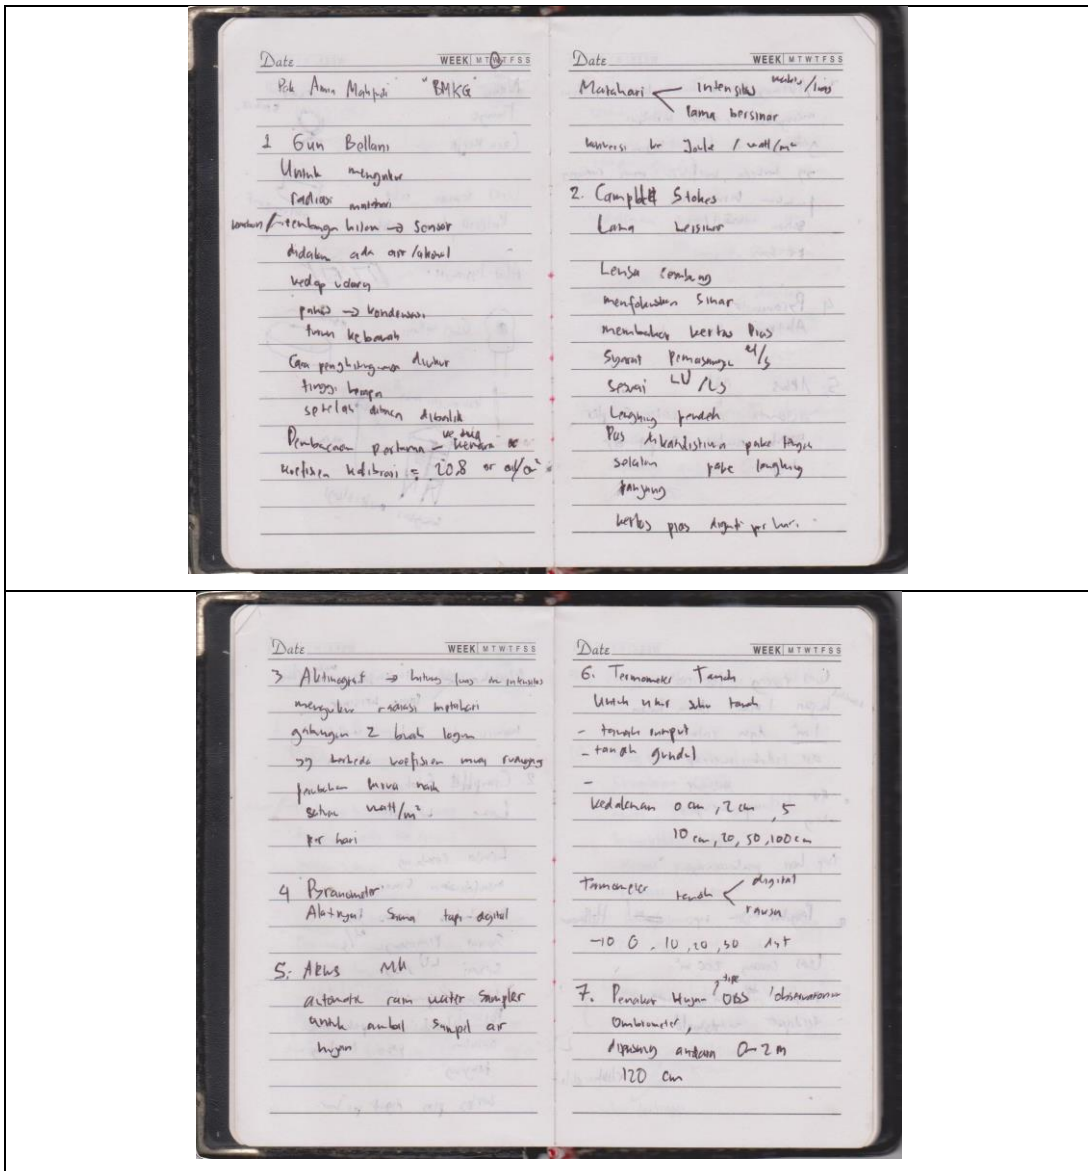 Date WEEK M T W T F S S
Pak Amin "BMKG"
1 Gun Bellani
Untuk mengukur
radiasi matahari
tembaga hitam → sensor
didalam ada air/alkohol
kedap udara
panas → kondensasi
turun kebawah
Cara penghitungannya diukur
tinggi
setelah dibalik
Pembacaan pertama - kedua
koefisien kalibrasi = 208
Date WEEK M T W T F S S
Matahari intensitas
lama bersinar
konversi ke Joule / watt/m²
2. Campbell Stokes
Lama bersinar
Lensa cembung
memfokuskan Sinar
membakar kertas Pias
Syarat pemasangan U/S
sesuai LU/LS
Lengkung pendek
Pas pake
selain pake lengkung
panjang
kertas pias diganti per hari.
Date WEEK M T W T F S S
3 Aktinograf → hitung luas intensitas
mengukur radiasi matahari
gabungan 2 buah logam
yg berbeda koefisien muai ruangnya
perubahan
satuan watt/m²
per hari
4 Pyranometer
Alatnya Sama tapi digital
5. ARWS
automatic rain water sampler
untuk ambil sampel air
hujan
Date WEEK M T W T F S S
6. Termometer Tanah
Untuk ukur suhu tanah
- tanah rumput
- tanah gundul
-
Kedalaman 0 cm, 2 cm, 5
10 cm, 20, 50, 100 cm
Termometer tanah digital
-10 0, 10, 20, 50 dst
7. Penakar Hujan tipe OBS 'observatorium
Ombrometer,
dipasang antara 0-2 m
120 cm